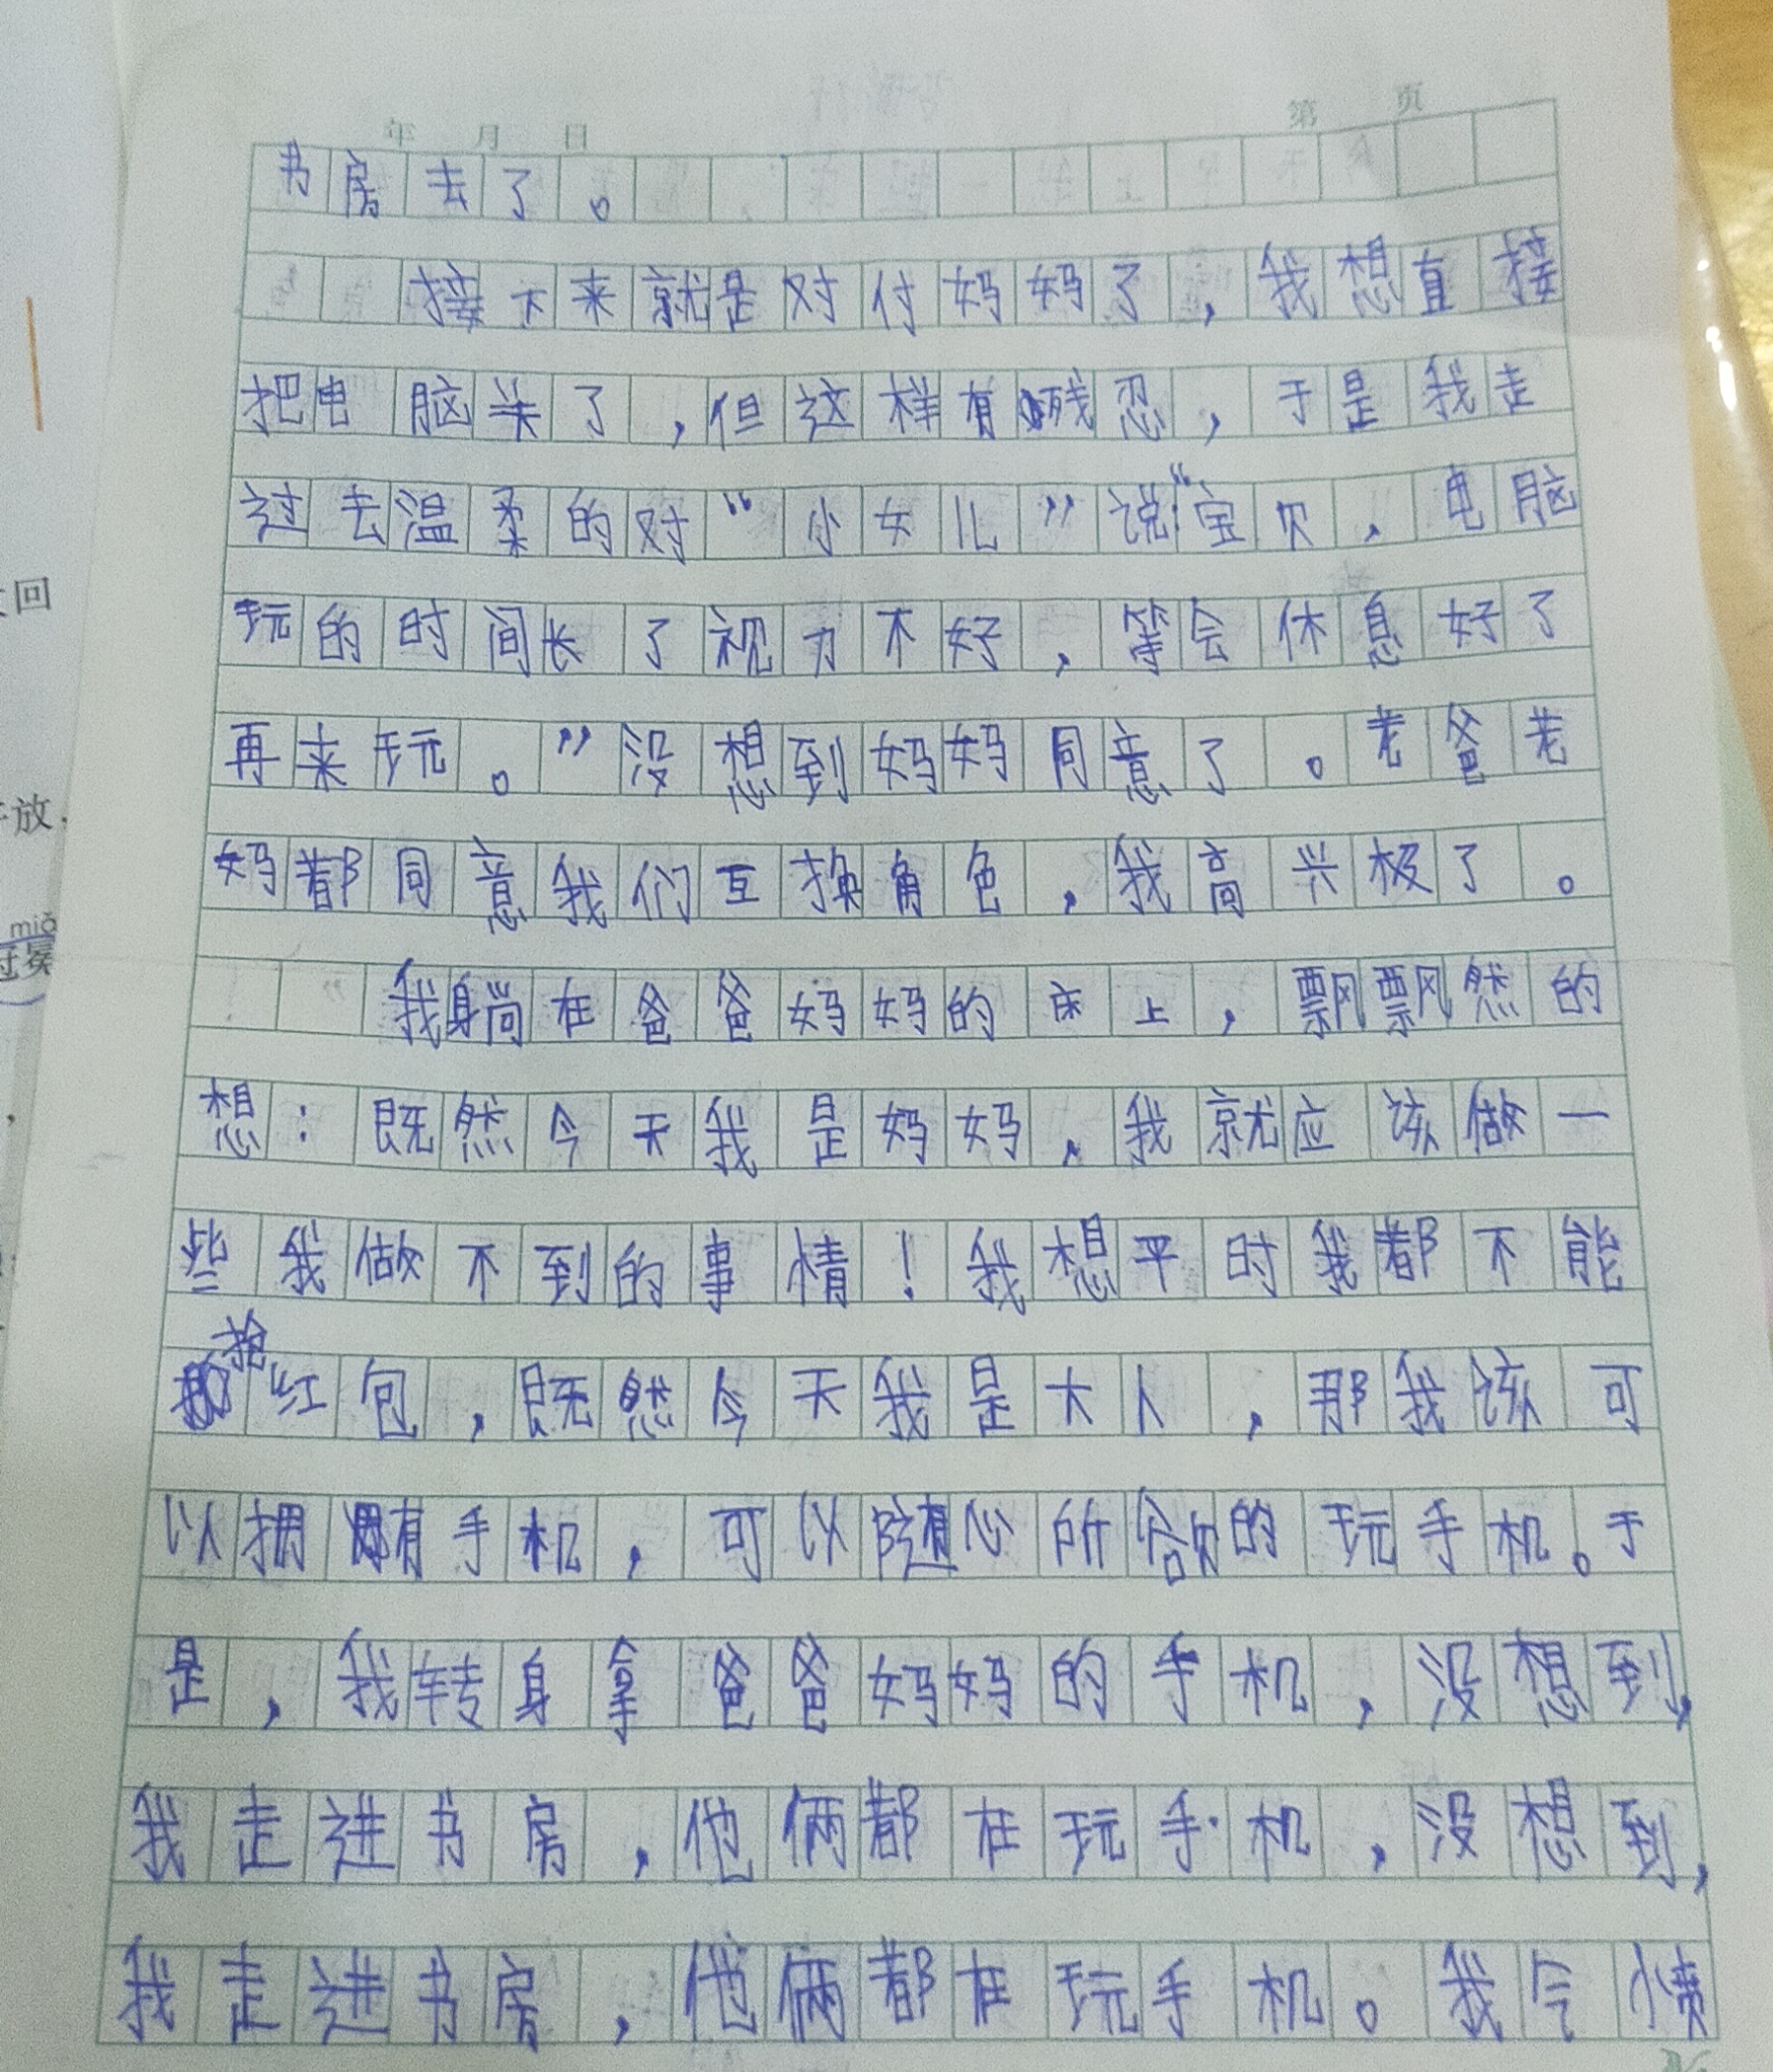 年 月 日 第 页
书房去了。
接下来就是对付妈妈了，我想直接
把电脑关了，但这样有残忍，于是我走
过去温柔的对“小女儿”说：“宝贝，电脑
玩的时间长了视力不好，等会休息好了
再来玩。”没想到妈妈同意了。老爸老
妈都同意我们互换角色，我高兴极了。
我躺在爸爸妈妈的床上，飘飘然的
想：既然今天我是妈妈，我就应该做一
些我做不到的事情！我想平时我都不能
抢红包，既然今天我是大人，那我该可
以拥有手机，可以随心所欲的玩手机。于
是，我转身拿爸爸妈妈的手机，没想到，
我走进书房，他俩都在玩手机，没想到，
我走进书房，他俩都在玩手机。我令愤
回
放.
miǎ
冠冕